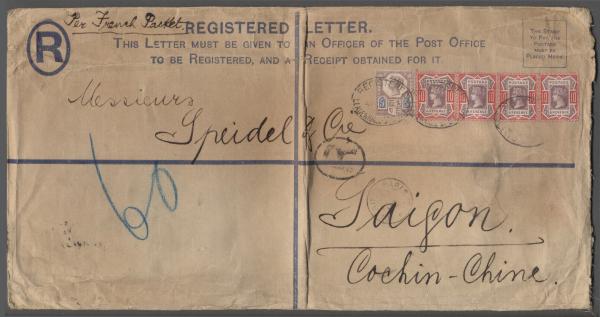 Per French Packet.
R
REGISTERED LETTER.
THIS LETTER MUST BE GIVEN TO AN OFFICER OF THE POST OFFICE
TO BE REGISTERED, AND A RECEIPT OBTAINED FOR IT.
THE STAMP
TO PAY THE
POSTAGE
MUST BE
PLACED HERE
Messieurs
Speidel & Cie
60
Saigon.
Cochin-Chine.